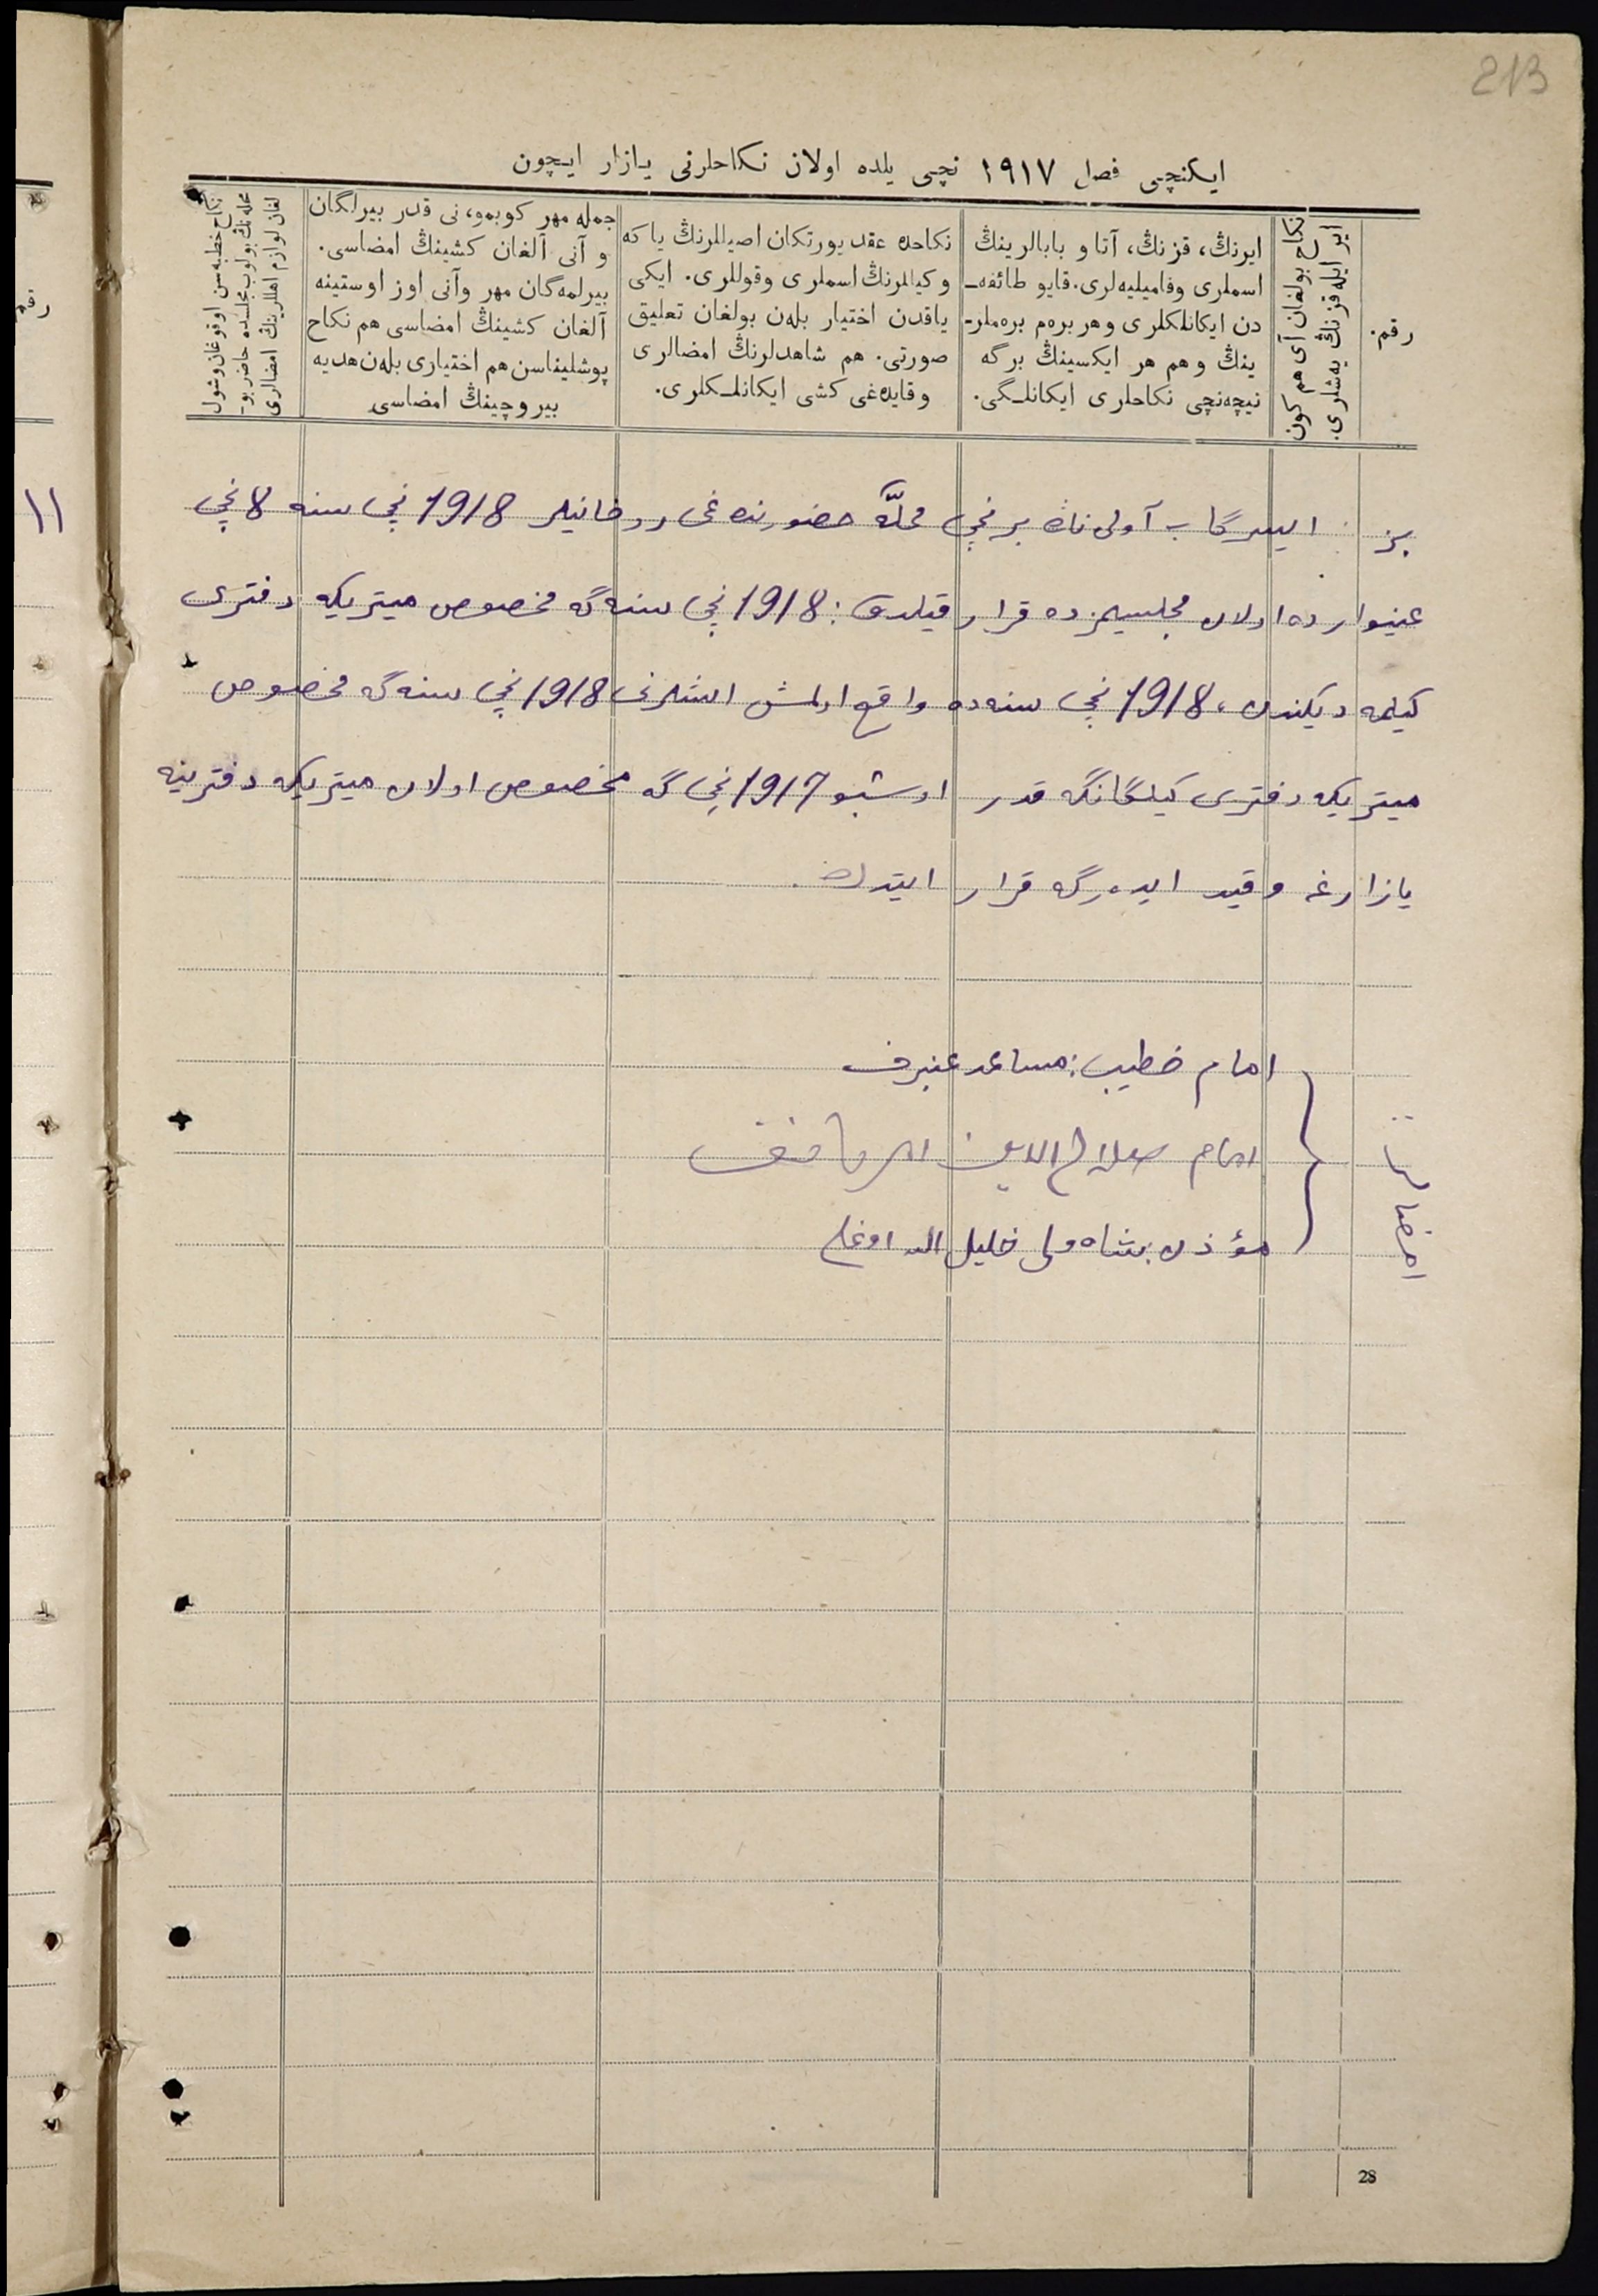 213
ایکنچی فصل ١٩١٧ نچی یلده اولان نکاحلرنی یازار ایچون
رقم.
نکاح بولغان آی هم کون
ایر ایله قزنڭ یەشلری.
ایرنڭ، قزنڭ، آتا و بابالرینڭ
اسملری وفامیلیەلری. قایو طائفەـ
دن ایکانلکلری وهر برەم برەملرـ
ینڭ وهم هر ایکسینڭ برگە
نیچەنچی نکاحلری ایکانلـگی.
نکاحدە عقد یورتکان اصیللرنڭ یا کە
وکیللرنڭ اسملری وقوللری. ایکی
یاقدن اختیار بلەن بولغان تعلیق
صورتی. هم شاهدلرنڭ امضالری
وقایدەغی کشی ایکانلـکلری.
جملە مهر کوبمو، نی قدر بیرلگان
و آنی آلغان کشینڭ امضاسی.
بیرلمەگان مهر وآنی اوز اوستینە
آلغان کشینڭ امضاسی هم نکاح
پوشلیناسن هم اختیاری بلەن هدیە
بیروچینڭ امضاسی
نکاح خطبەسن اوقوغان وشول
محلەنڭ بولوب مجلسدە حاضر بوـ
لغان لوازم اهللرینڭ امضالری
رقم
١١
بز ایسرگاب آولی ناڭ برنچی محلّە حضورندەغی روحانیلر 1918 نچی سنە 8 نچی
غینواردە اولان مجلسیمزدە قرار قیلدق: 1918 نچی سنەگە مخصوص میتریکە دفتری
کیلمە دیکندن، 1918 نچی سنەدە واقع اولمش اشلرنی 1918 نچی سنەگە مخصوص
میتریکە دفتری کیلگانگە قدر اوشبو 1917 نچی گە مخصوص اولان میتریکە دفترینە
یازارغە وقید ایدەرگە قرار ایتدك.
امضالر:
امام خطیب: مساعد عنبرف
امام صلاح الدین
مؤذن: شاە ولی خلیل الله اوغلی
28